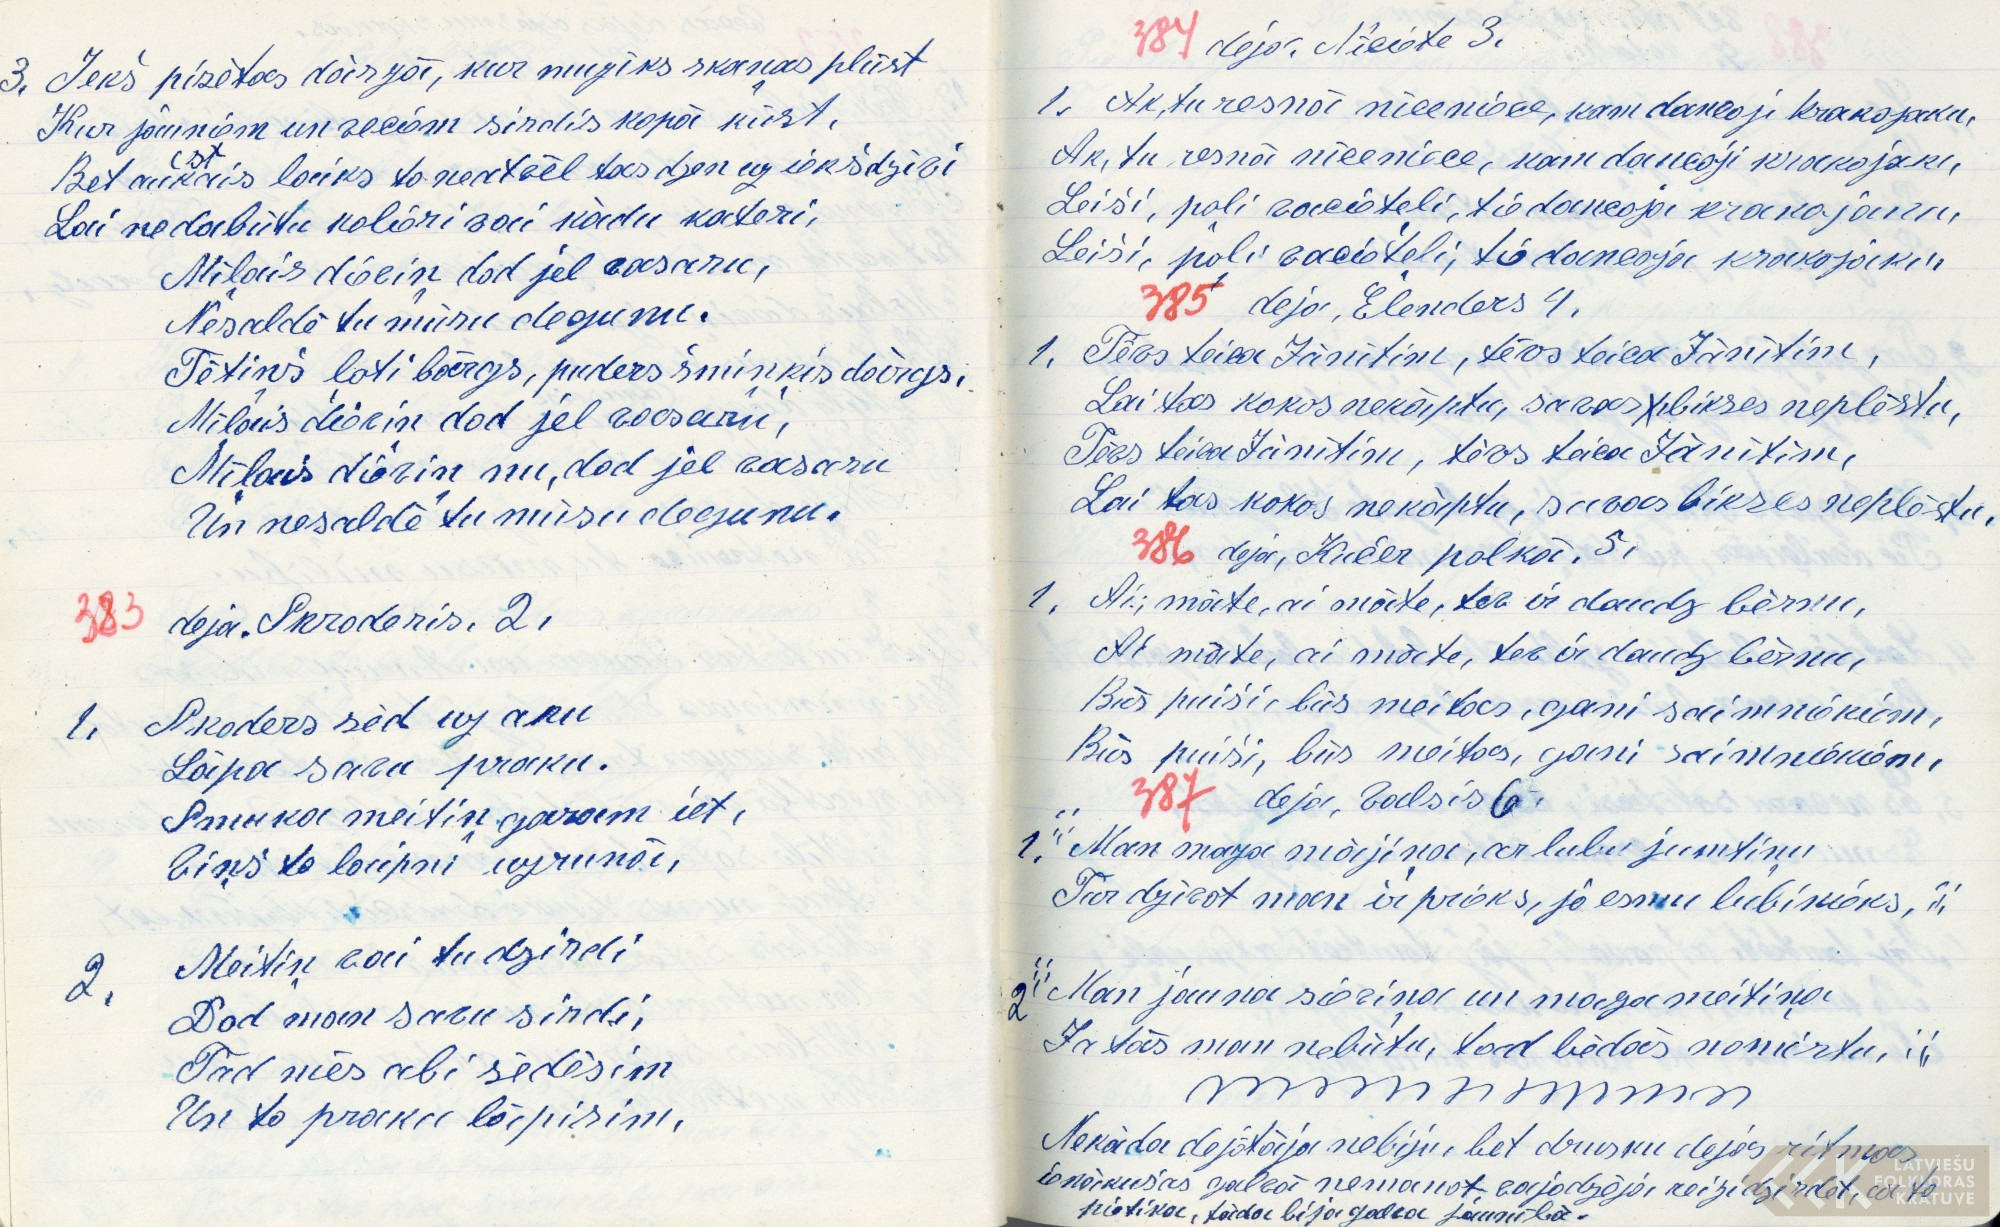 3. Iekš pizētas dārzā, kur muziks skaņas plūst
Kur jauniem un veciem sirdis kopā kūst,
Bet aukstais laiks to neatvēl tas dzen uz iekšdzīvi
Lai nedabūtu kolieri vai kādu kateri,
Mīļais dieviņ dod jel vasaru,
Nesaldē tu mūsu degunu.
Tētiņš ļoti bārgs, puders šmiņķis dārgs,
Mīļais dieviņ dod jel vasaru,
Mīļais dieviņ nu, dod jel vasaru
Un nesaldē tu mūsu degunu.
383 deja. Skroderis. 2.
1. Skoders sēd uz aku
Lāpa savu praku.
Smuka meitiņ garam iet,
Viņš to laipni uzrunā,
2. Meitiņ vai tu dzirdi
Dod man savu sirdi,
Tad mēs abi sēdēsim
Un to praku lāpīsim,
384 deja. Nīcióte 3.
1. Ak, tu resnā nīceniece, kam dancoji krakojaku,
Ak, tu resnā nīceniece, kam dancoji krakojaku,
Leiši, poļi vacieteļi, tie dancoja krakajaku,
Leiši, poļi vacieteļi, tie dancoja krakojaku,
385 deja, Elenders 4.
1. Tēvs teica Jānītim, tēvs teica Jānītim,
Lai tas kokos nekāptu, savas bikses neplēstu,
Tēvs teica Jānītim, tēvs teica Jānītim,
Lai tas kokos nekāptu, savas bikses neplēstu,
386 deja, Kučier polkā. 5.
1. Ai, māte, ai māte, tev ir daudz bērnu,
Ai māte, ai māte, tev ir daudz bērnu,
Būs puiši, būs meitas, gani saimniekiem,
Būs puiši, būs meitas, gani saimniekiem,
387 deja, valsis 6.
1. Man maza mājiņa, ar lubu jumtiņu
Tur dzīvot man ir prieks, jo esmu lubinieks,
2 Man jauna sieviņa un maza meitiņa
Ja tās man nebūtu, tad bēdās nomirtu,
Nekāda dejotāja nebiju, bet drusku dejas ritmas
ienākušas galvā nemanot, vajadzēja reizi dzirdēt, ar to
pietika, tāda bija galva jaunībā.
LATVIEŠU
FOLKLORAS
KRĀTUVE